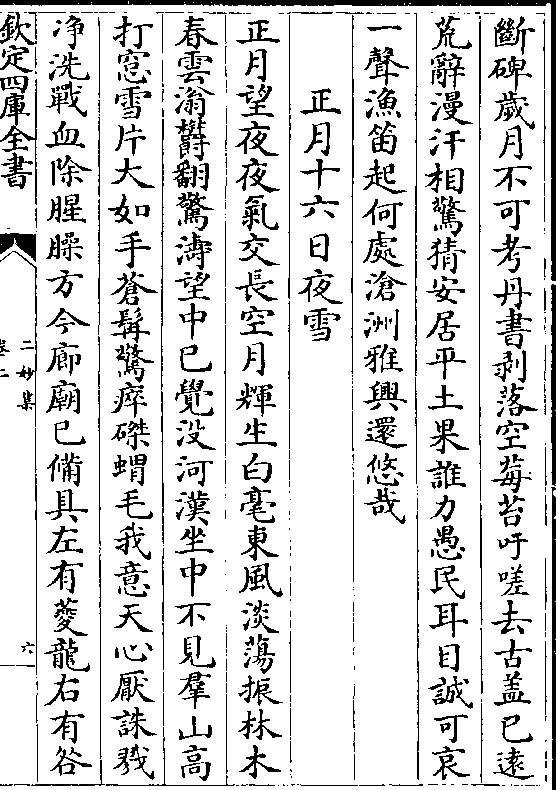 斷碑歲月不可考丹書剥落空莓苔吁嗟去古盖已逺
荒辭漫汗相驚猜安居平土果誰力愚民耳目誠可哀
一聲漁笛起何處滄洲雅興還悠哉
正月十六日夜雪
正月望夜夜氣交長空月輝生白毫東風淡蕩振林木
春雲滃欝翻驚濤望中已覺没河漢坐中不見羣山高
打窓雪片大如手蒼髯驚瘁磔蝟毛我意天心厭誅戮
净洗戰血除腥臊方今廊廟已備具左有夔龍右有咎
欽定四庫全書
二妙集
卷二
六